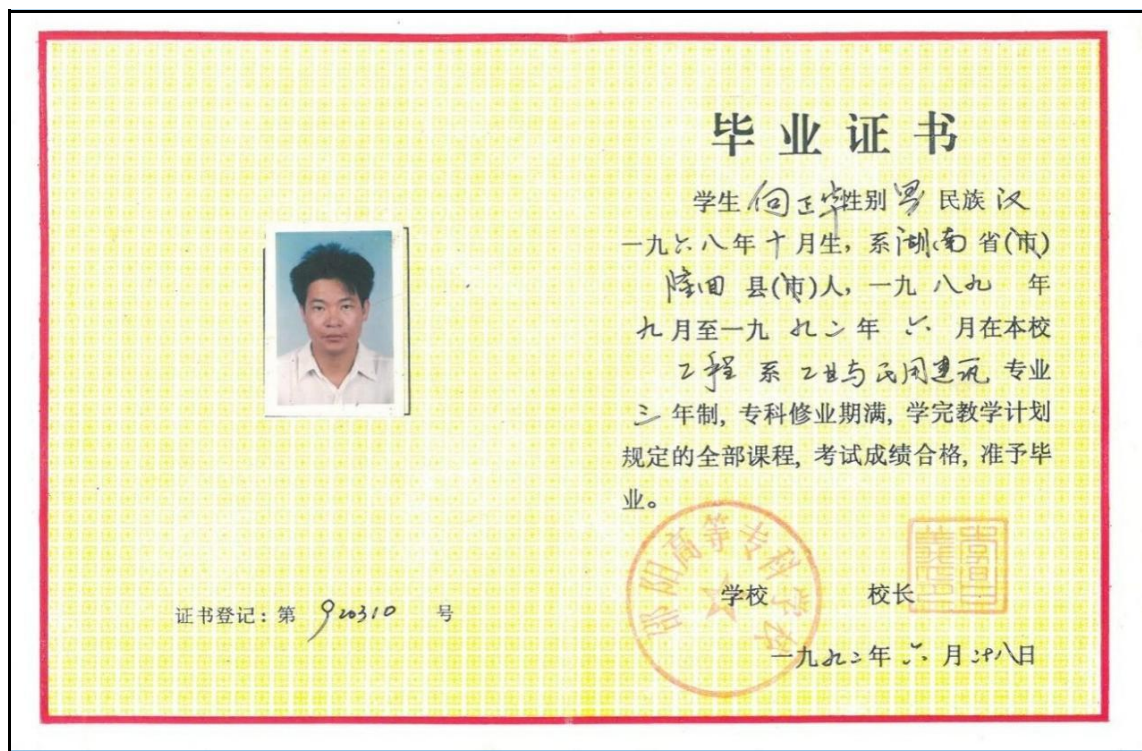 证书登记：第 920310 号
毕业证书
学生 向正华 性别 男 民族 汉
一九六八年十月生，系湖南省(市)
隆回 县(市)人，一九八九 年
九月至一九九二年 六 月在本校
工程 系 工业与民用建筑 专业
三 年制，专科修业期满，学完教学计划
规定的全部课程，考试成绩合格，准予毕
业。
邵阳高等专科学校
学校 校长
一九九二年六月二十八日